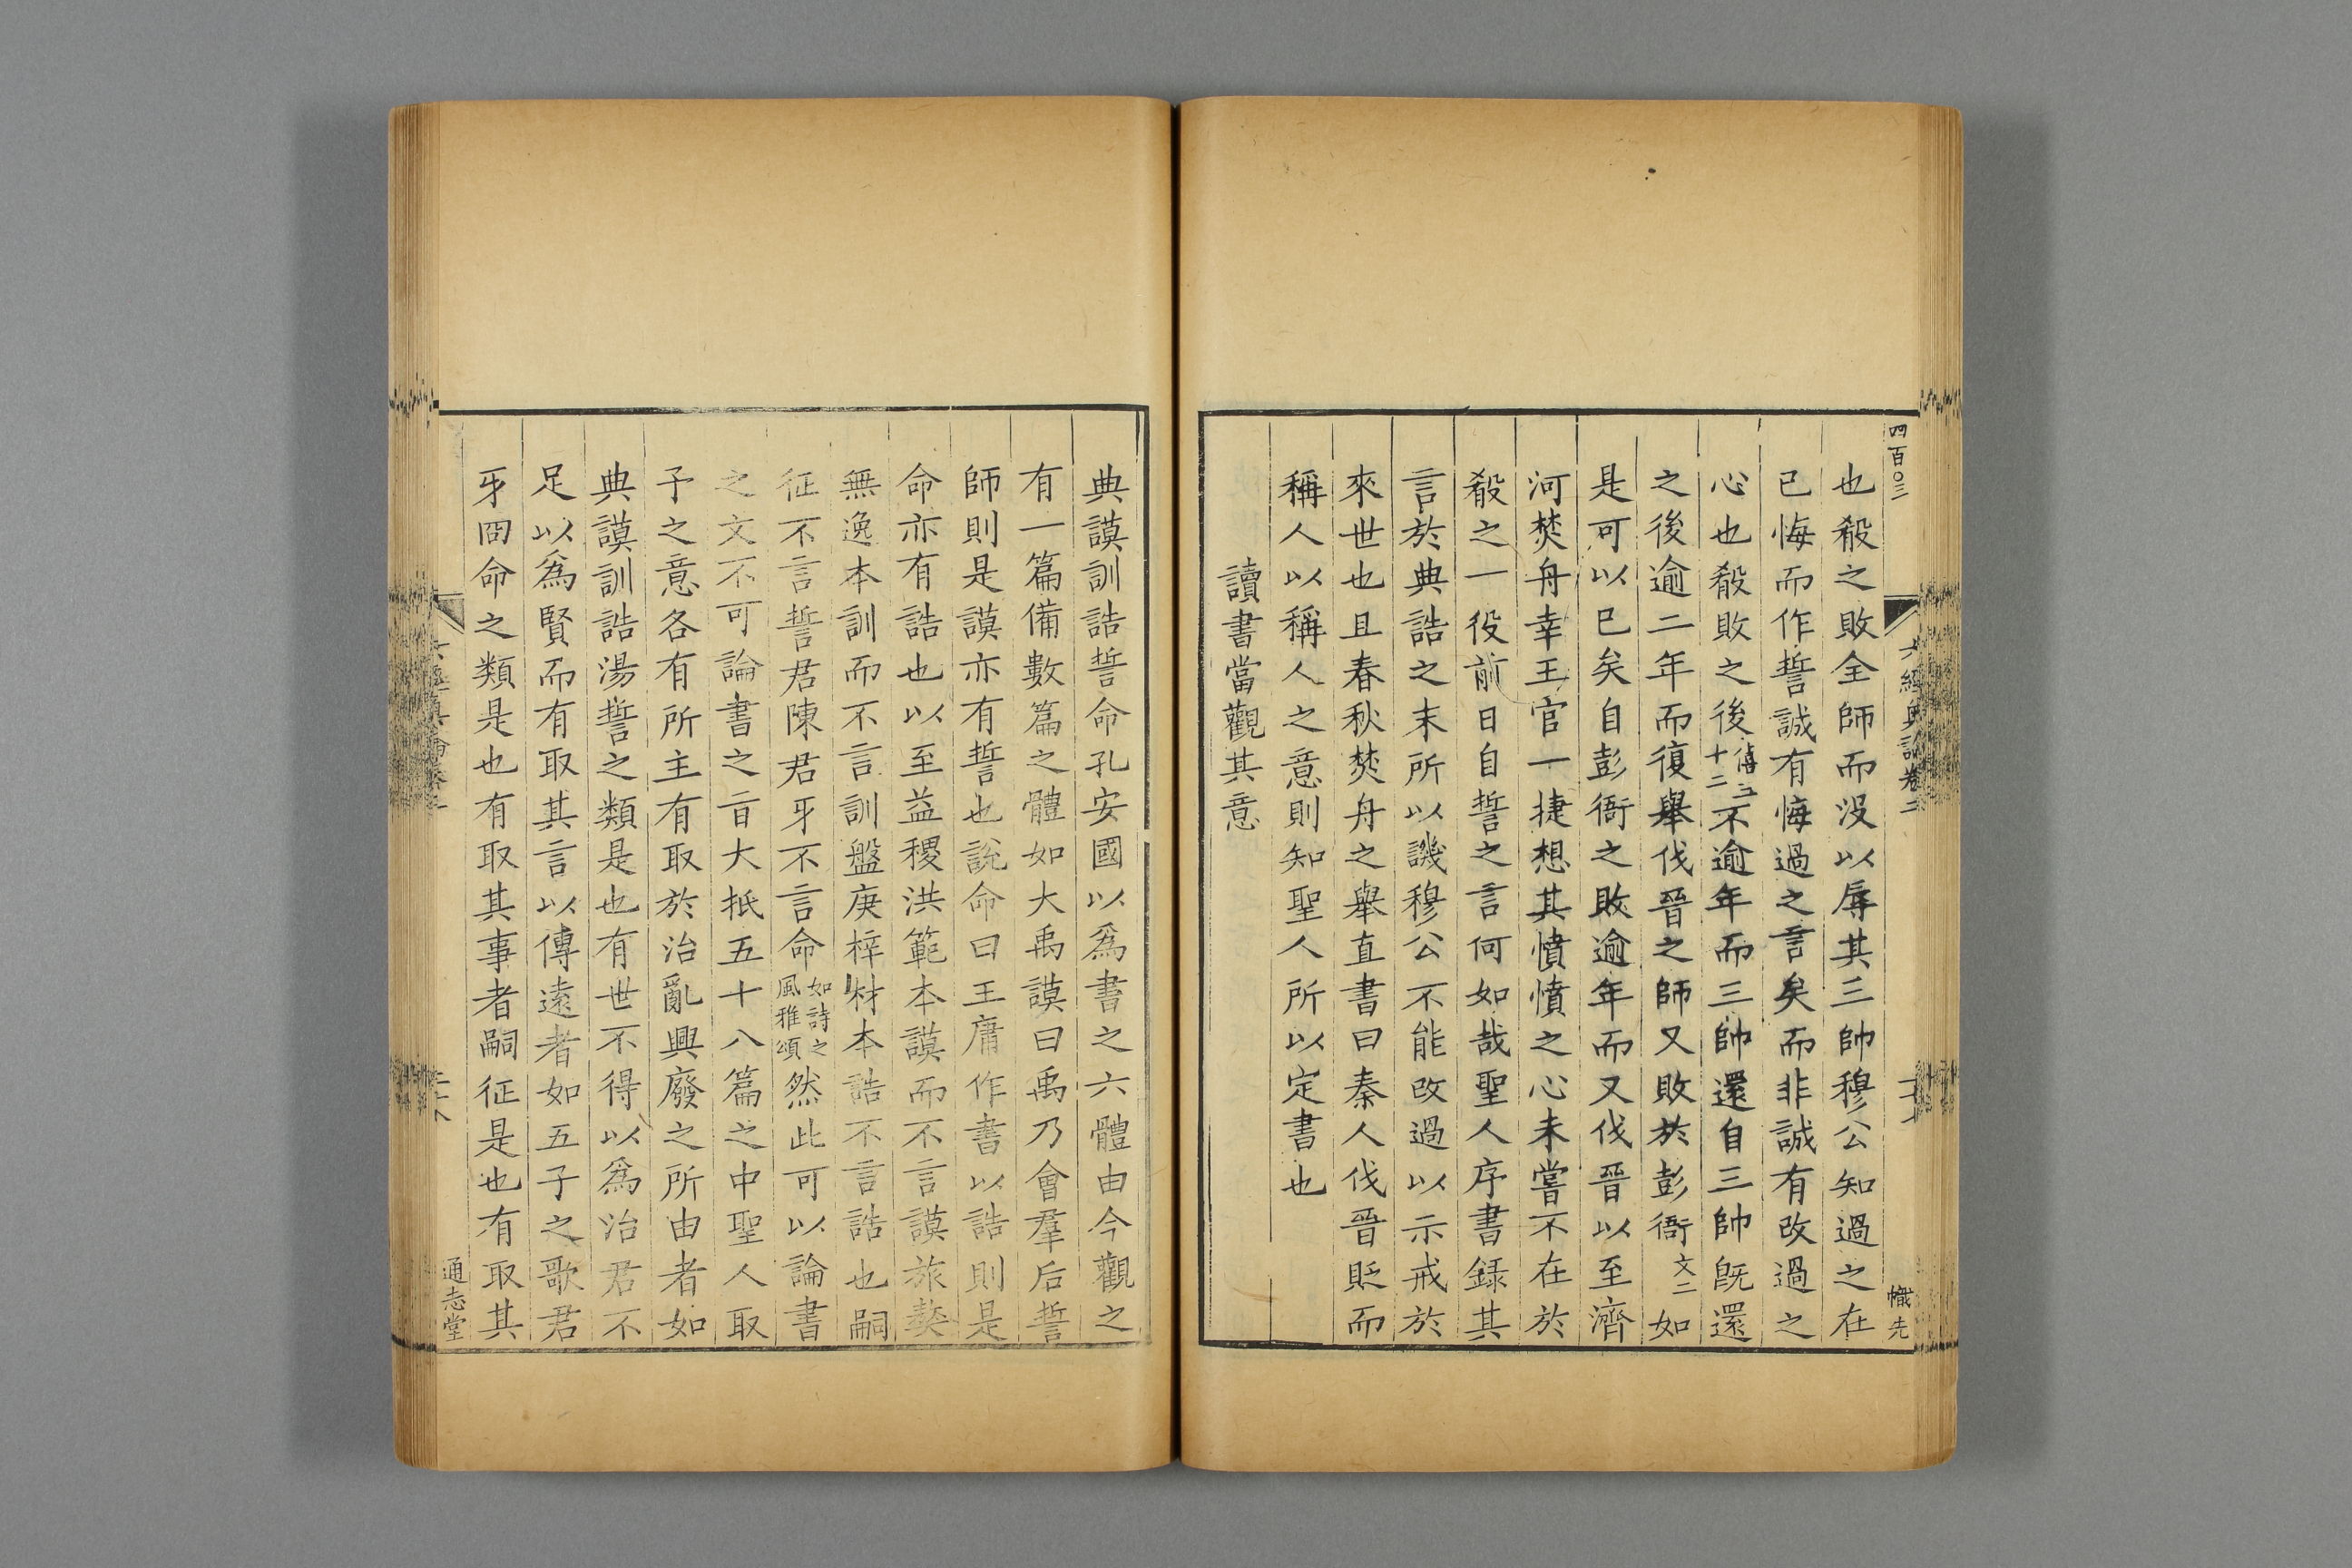 四百〇三
也殽之敗全師而没以辱其三帥穆公知過之在
已悔而作誓誠有悔過之言矣而非誠有改過之
心也殽敗之後僖三十二不逾年而三帥還自三帥旣還
之後逾二年而復舉伐晉之師又敗於彭衙文二如
是可以已矣自彭衙之敗逾年而又伐晉以至濟
河焚舟幸王官一捷想其憤憤之心未嘗不在於
殽之一役前日自誓之言何如哉聖人序書録其
言於典誥之末所以譏穆公不能改過以示戒於
來世也且春秋焚舟之舉直書曰秦人伐晉貶而
稱人以稱人之意則知聖人所以定書也
讀書當觀其意
典謨訓誥誓命孔安國以爲書之六體由今觀之
有一篇備數篇之體如大禹謨曰禹乃會羣后誓
師則是謨亦有誓也說命曰王庸作書以誥則是
命亦有誥也以至益稷洪範本謨而不言謨旅獒
無逸本訓而不言訓盤庚梓材本誥不言誥也嗣
征不言誓君陳君牙不言命如詩之風雅頌然此可以論書
之文不可論書之㫖大抵五十八篇之中聖人取
予之意各有所主有取於治亂興廢之所由者如
典謨訓誥湯誓之類是也有世不得以爲治君不
足以爲賢而有取其言以傳遠者如五子之歌君
牙冏命之類是也有取其事者嗣征是也有取其
六經奧論卷二
幟先
通志堂